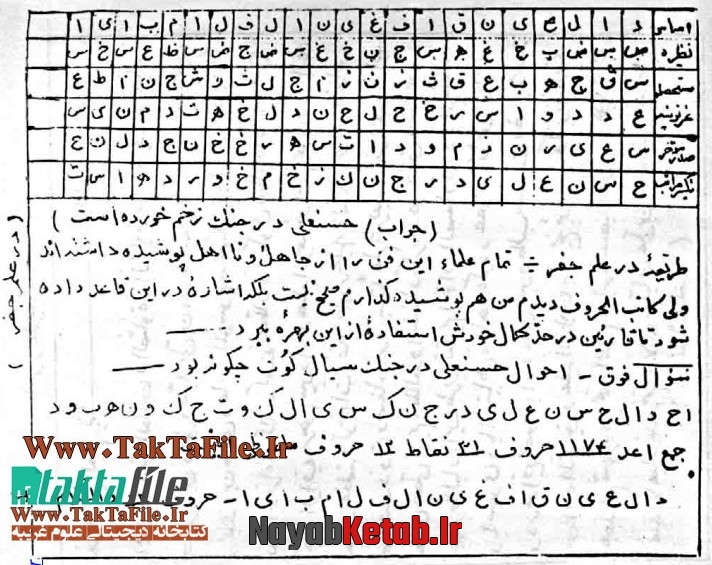 اساس د ا ل ع ی ن ق ا ف غ ی ن ا ل ف ل ا م ب ا ی ا
نظیره
مستحصله س ق ج ه ب ع ق ث ز ن ز م ج ل ث و ش ج ن ا ط ع
ع د د و ا س ر خ ح ل ح ن د ل خ ه ت د م ن ی س
صدر مؤخر س ع ی ر ن د م و د ا ت س ه ر خ خ ن ج د ل ن ح
ح س ن ع ل ی د ر ج ن ك ز خ م خ و ر د ه ا س ت
(جواب) حسنعلی در جنك زخم خورده است)
(در علم جفر)
طریقهٔ در علم جفر ÷ تمام علماء این فن را از جاهل و نا اهل پوشیده داشته اند
ولی کاتب الحروف دیدم من هم پوشیده گذارم صحیح نیست بلکه اشارهٔ در این قاعده داده
شود تا قارئین در حدّ کمال خودش استفادهٔ از این بهرهٔ ببرد
سؤال فوق - احوال حسنعلی در جنك سیال کوت چگونه بود
ا ح و ا ل ح س ن ع ل ی د ر ج ن ك س ی ا ل ك و ت چ ك و ن ه ب و د
جمع اعد ۱۱۷۴ حروف ۳۱ نقاط ۱۲ حروف
د ا ل ع ی ن ق ا ف غ ی ن ا ل ف ل ا م ب ا ی ا - حروف
Www.TakTaFile.Ir
taktafile
Www.TakTaFile.Ir
کتابخانه دیجیتالی علوم غریبه
NayabKetab.Ir